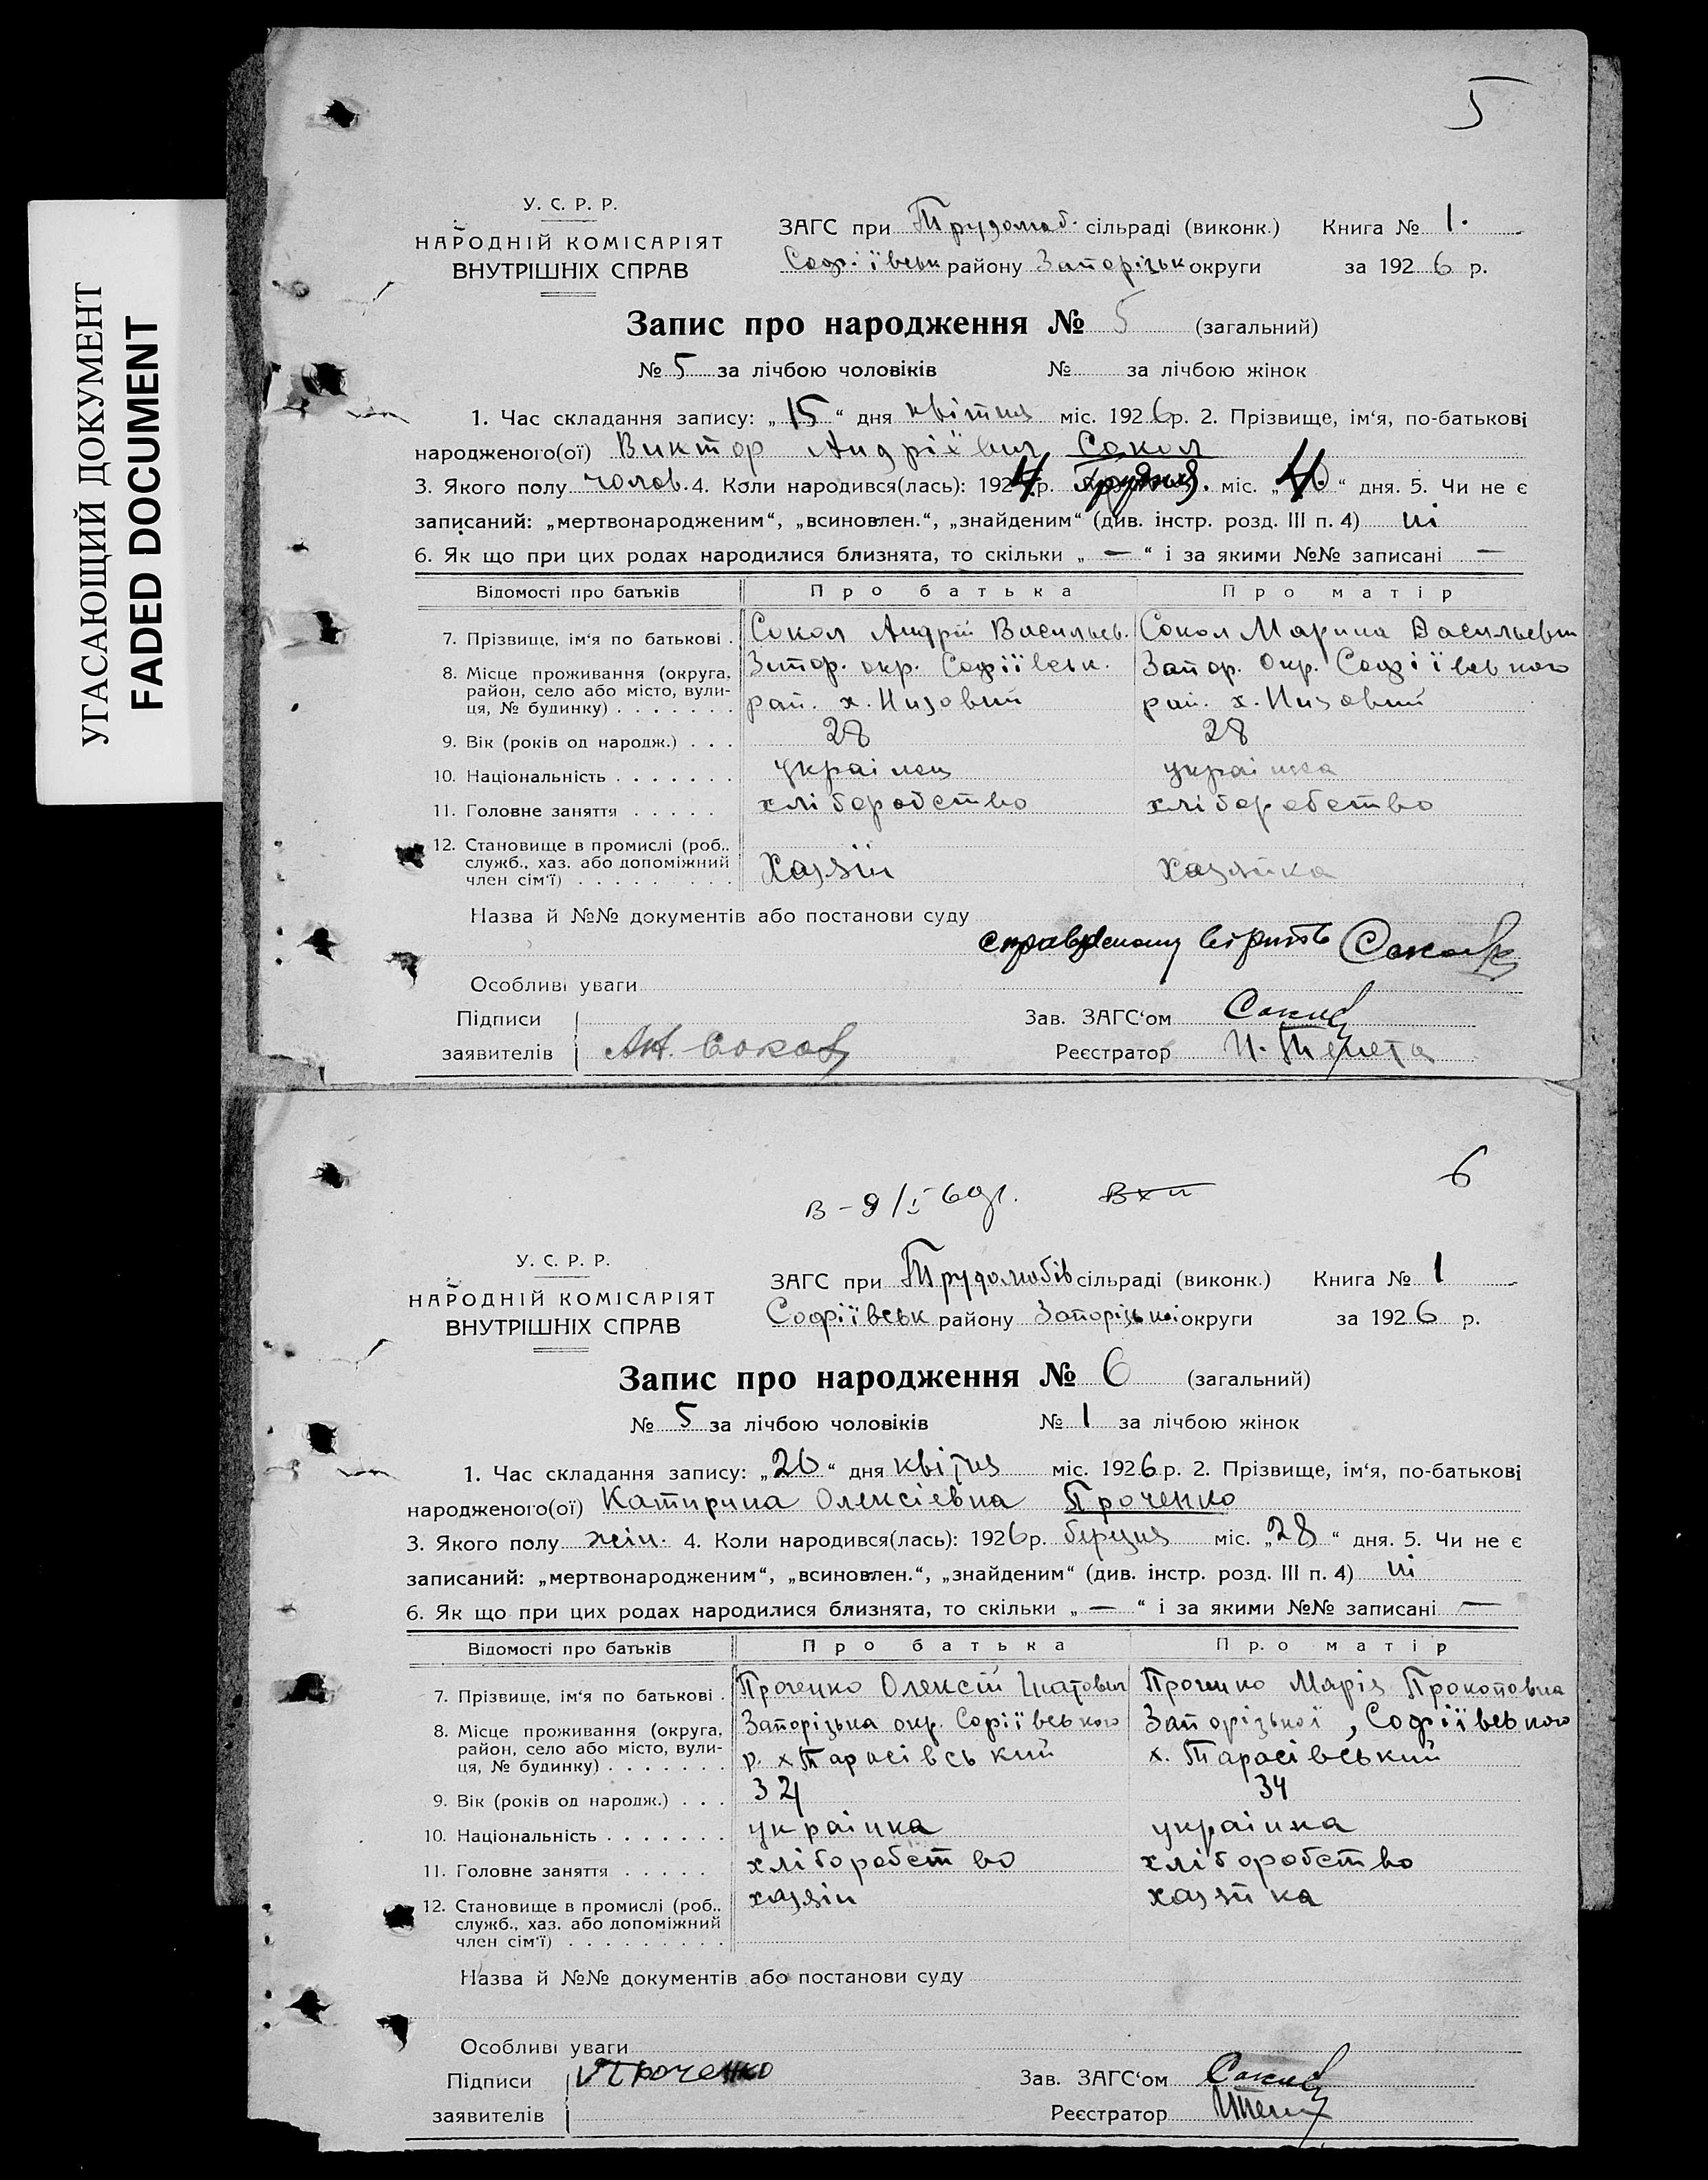 УГАСАЮЩИЙ ДОКУМЕНТ
FADED DOCUMENT
5
У. С. Р. Р.
НАРОДНІЙ КОМІСАРІЯТ
ВНУТРІШНІХ СПРАВ
ЗАГС при Трудолюб. сільраді (виконк.) Книга № 1.
Софіївськ району Запорізьк округи за 1926 р.
Запис про народження № 5 (загальний)
№ 5 за лічбою чоловіків № за лічбою жінок
1. Час складання запису: „15“ дня квітня міс. 1926 р. 2. Прізвище, ім‘я, по-батькові
народженого(ої) Виктор Андріївич Сокол
3. Якого полу чолов. 4. Коли народився(лась): 1924 р. Грудня. міс. „ “ дня. 5. Чи не є
записаний: „мертвонародженим“, „всиновлен.“, „знайденим“ (див. інстр. розд. III п. 4) ні
6. Як що при цих родах народилися близнята, то скільки „ — “ і за якими №№ записані —
Відомості про батьків Про батька Про матір
7. Прізвище, ім‘я по батькові . Сокол Андрій Васильев. Сокол Марина Васильевн
8. Місце проживання (округа, Запор. окр. Софіївськ. Запор. Окр. Софіївського
район, село або місто, вули-
ця, № будинку) . . . . . . . рай. х. Низовий рай. х. Низовий
9. Вік (років од народж.) . . . 28 28
10. Національність . . . . . . . українець українка
11. Головне заняття . . . . . хліборобство хліборобство
12. Становище в промислі (роб..
служб., хаз. або допоміжний Хазяїн Хазяйка
член сім‘ї) . . . . . . . . .
Назва й №№ документів або постанови суду
вірить
Особливі уваги
Підписи Зав. ЗАГС‘ом
заявителів Ан. Сокол Реєстратор
6
В - 9/I 69г. В х п
У. С. Р. Р.
НАРОДНІЙ КОМІСАРІЯТ
ВНУТРІШНІХ СПРАВ
ЗАГС при Трудолюбів сільраді (виконк.) Книга № 1
Софіївськ району Запорізької округи за 1926 р.
Запис про народження № 6 (загальний)
№ 5 за лічбою чоловіків № 1 за лічбою жінок
1. Час складання запису: „20“ дня квітня міс. 1926 р. 2. Прізвище, ім‘я, по-батькові
народженого(ої) Катирина Олексіевна Проченко
3. Якого полу жін. 4. Коли народився(лась): 1926 р. березня міс. „28“ дня. 5. Чи не є
записаний: „мертвонародженим“, „всиновлен.“, „знайденим“ (див. інстр. розд. III п. 4) ні
6. Як що при цих родах народилися близнята, то скільки „ — “ і за якими №№ записані —
Відомості про батьків Про батька Про матір
7. Прізвище, ім‘я по батькові . Проченко Олексій Ігнатович Проченко Марія Прокоповна
8. Місце проживання (округа, Запорізька окр. Софіївського Запорізької, Софіївського
район, село або місто, вули- р. х Тарасівський х. Тарасівський
ця, № будинку) . . . . . . .
9. Вік (років од народж.) . . . 34
10. Національність . . . . . . . українка українка
11. Головне заняття . . . . . хліборобство хліборобство
12. Становище в промислі (роб.. хазяін хазяйка
служб., хаз. або допоміжний
член сім‘ї) . . . . . . . . .
Назва й №№ документів або постанови суду
Особливі уваги
Підписи Проченко Зав. ЗАГС‘ом
заявителів Реєстратор